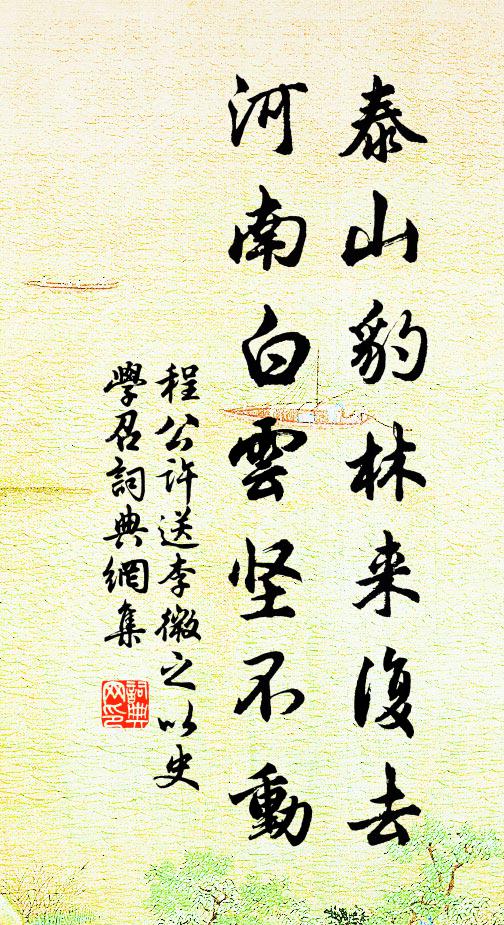 泰山豹林来復去
河南白雲坚不動
程公许送李微之以史
學召詞典網集
詞典
网印